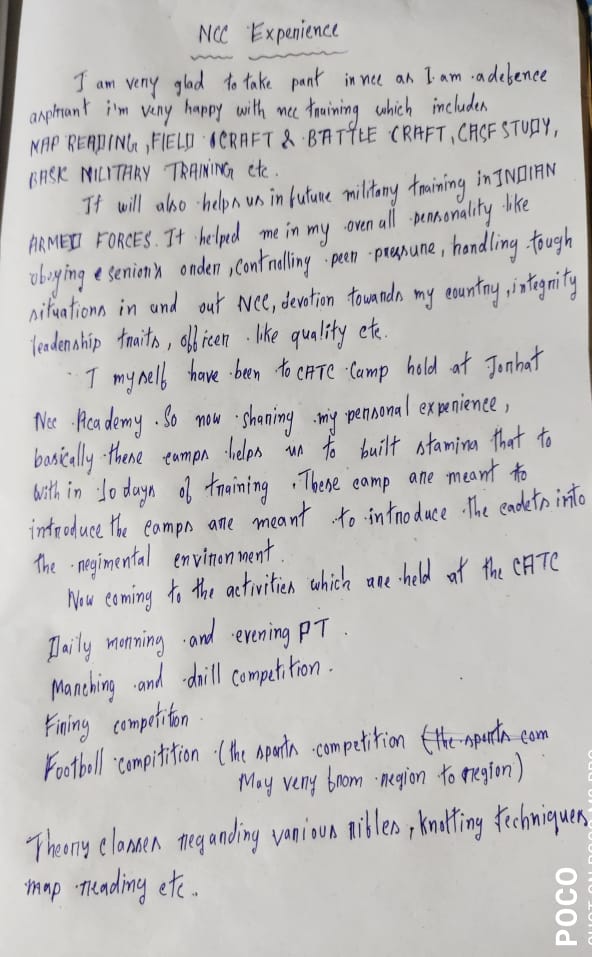 NCC Experience
I am very glad to take part in ncc as I am a defence
aspirant i'm very happy with ncc training which includes
MAP READING, FIELD CRAFT & BATTLE CRAFT, CASE STUDY,
BASIC MILITARY TRAINING etc.
It will also helps us in future military training in INDIAN
ARMED FORCES. It helped me in my over all personality like
obeying senior's order, controlling peer pressure, handling tough
situations in and out NCC, devotion towards my country, integrity
leadership traits, officer like quality etc.
I myself have been to CATC Camp hold at Jorhat
Ncc Academy. So now sharing my personal experience,
basically these camps helps us to built stamina that to
with in 10 days of training. These camp are meant to
introduce the camps are meant to introduce the cadets into
the regimental environment.
Now coming to the activities which are held at the CATC
Daily morning and evening PT.
Marching and drill competition.
Firing competiton.
Football compitition (the sports competition (the sports com
May very from region to region)
Theory classes regarding various rifles, knotting techniques,
map reading etc.
POCO